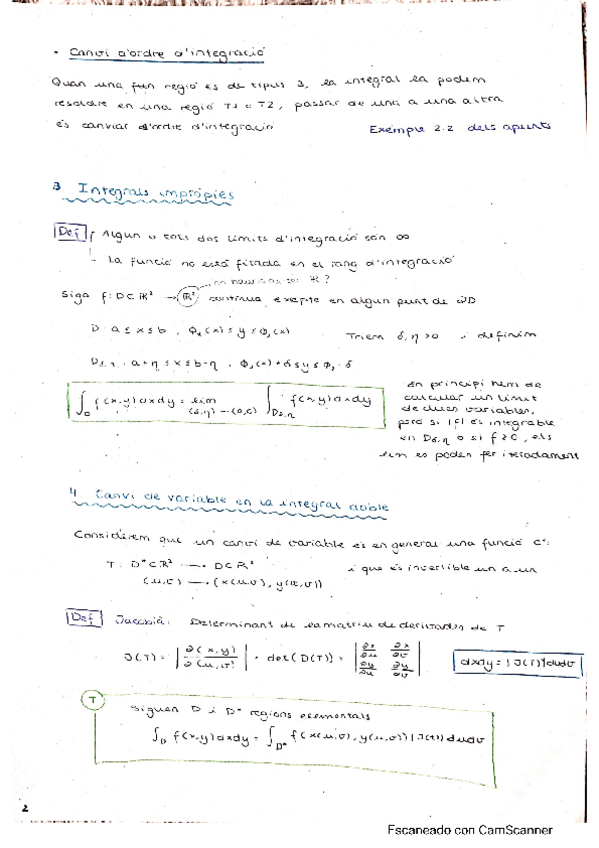 • Canvi d'ordre d'integració
Quan una fun regió es de tipus 3, la integral la podem
resoldre en una regió T1 o T2, passar de una a una altra
és canviar d'ordre d'integració
Exemple 2.2 dels apunts
3 Integrals impròpies
Def Algun o tots dos límits d'integració són ∞
La funció no està fitada en el rang d'integració
no hauria de ser ℝ?
Sigui f: D⊂ℝ² → ℝ² continua excepte en algun punt de ∂D
D: a ≤ x ≤ b, ϕ₁(x) ≤ y ≤ ϕ₂(x) Triem δ, η > 0 definim
a + η ≤ x ≤ b - η, ϕ₁(x) + δ ≤ y ≤ - δ
∫_D f(x,y)dxdy = lim_(δ,η)→(0,0) ∫_Dδ,η f(x,y)dxdy
En principi hem de
calcular un límit
de dues variables,
però si |f| és integrable
en Dδ,η o si f ≥ 0, els
lim es poden fer iteradament
4 Canvi de variable en la integral doble
Considerem que un canvi de variable és en general una funció C¹
T: D*⊂ℝ² → D⊂ℝ² i que és invertible un a un
(u,v) → (x(u,v), y(u,v))
Def Jacobià: Determinant de la matriu de derivades de T
J(T) = |∂(x,y)/∂(u,v)| = det(D(T)) = |∂x/∂u ∂x/∂v ∂y/∂u ∂y/∂v| dxdy = |J(T)|dudv
T
Siguen D i D* regions elementals
∫_D f(x,y)dxdy = ∫_D* f(x(u,v), y(u,v)) |J(T)| dudv
2
Escaneado con CamScanner